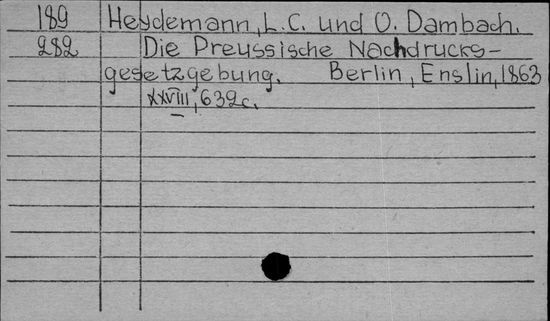 189 Heydemann, L. C. und O. Dambach.
282 Die Preussische Nachdrucks-
gesetzgebung. Berlin, Enslin, 1863
XXVIII, 639 c.